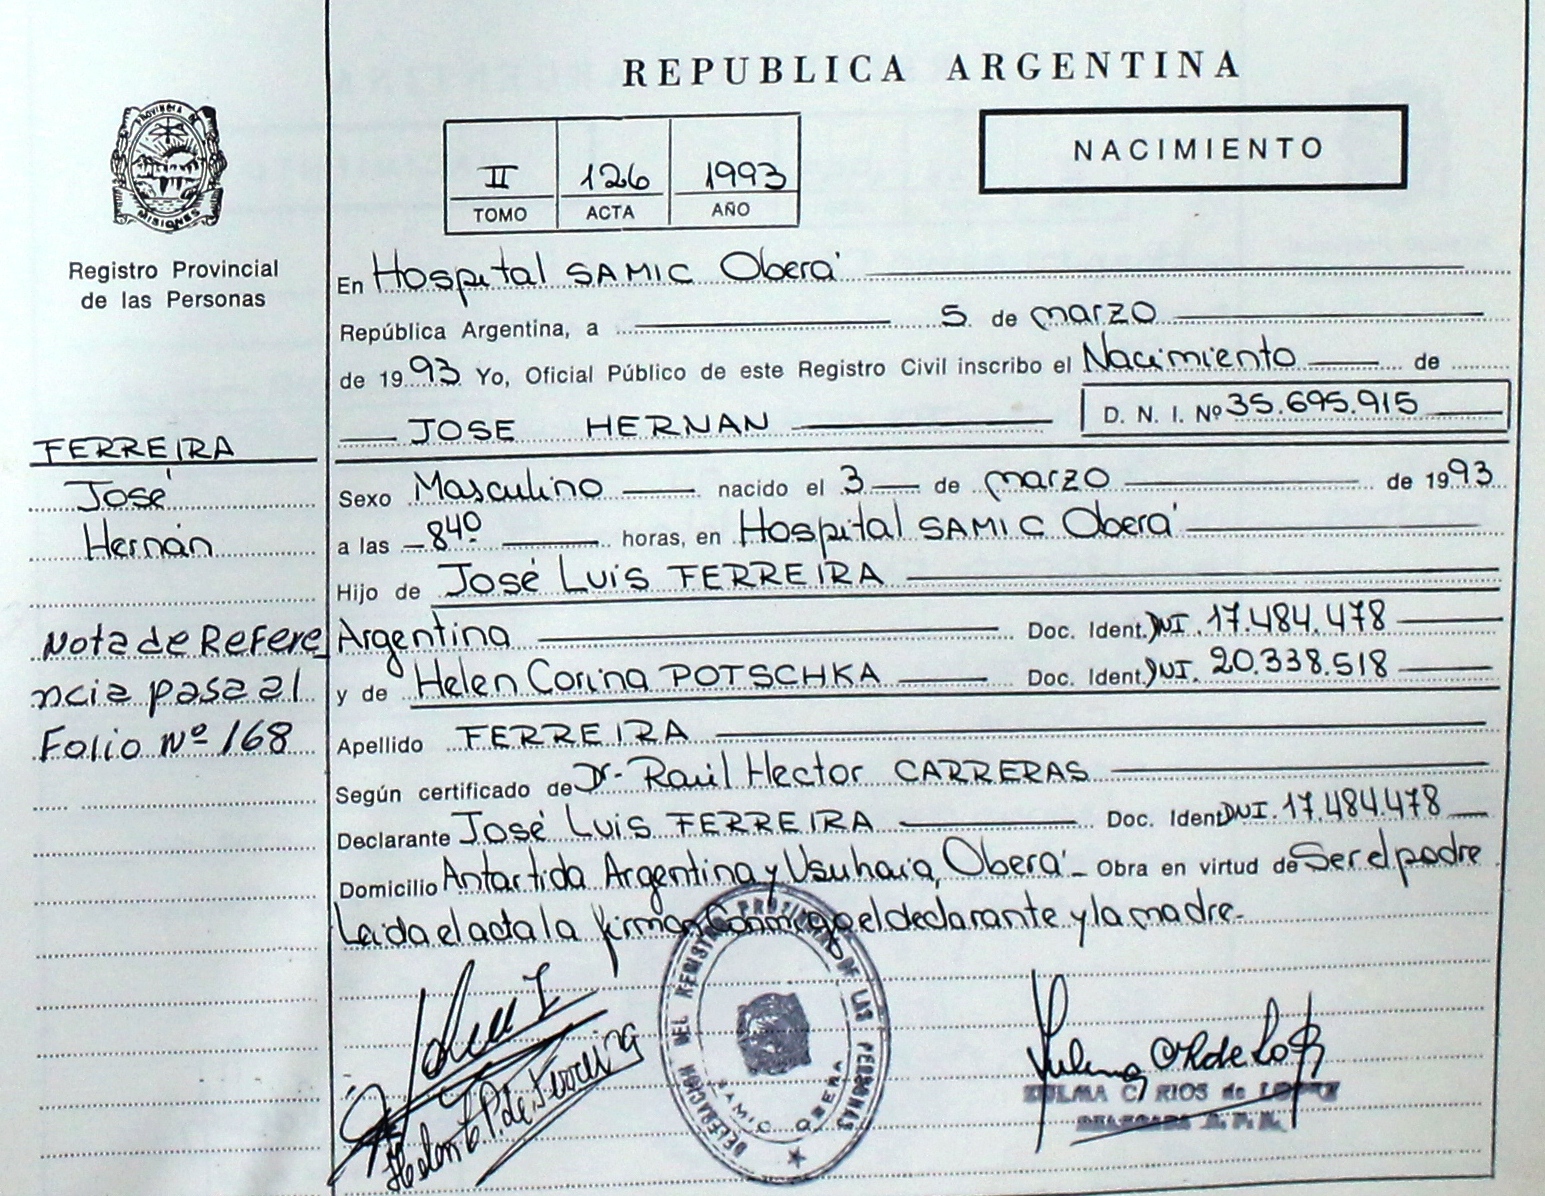 REPUBLICA ARGENTINA
PROVINCIA DE
MISIONES
Registro Provincial
de las Personas
II 126 1993
TOMO ACTA AÑO
NACIMIENTO
En Hospital SAMIC Oberá
República Argentina, a 5 de marzo
de 1993 Yo, Oficial Público de este Registro Civil inscribo el Nacimiento de
JOSE HERNAN D. N. I. Nº 35.695.915
FERREIRA
José
Hernán
Nota de Refere
ncia pasa al
Folio Nº 168
Sexo Masculino nacido el 3 de marzo de 1993
a las 8⁴⁰ horas, en Hospital SAMIC Oberá
Hijo de José Luis FERREIRA
Argentina Doc. Ident. DNI. 17.484.478
y de Helen Corina POTSCHKA Doc. Ident. DNI. 20.338.518
Apellido FERREIRA
Según certificado de Dr- Raúl Hector CARRERAS
Declarante José Luis FERREIRA Doc. Ident DNI. 17.484.478
Domicilio Antartida Argentina y Usuhaia, Oberá - Obra en virtud de Ser el padre
Leida el acta la firman Conmigo el declarante y la madre-
DELEGACION DEL REGISTRO PROVINCIAL DE LAS PERSONAS
SAMIC OBERA
ZULMA C. RIOS de LOPEZ
DELEGADA R.P.P.